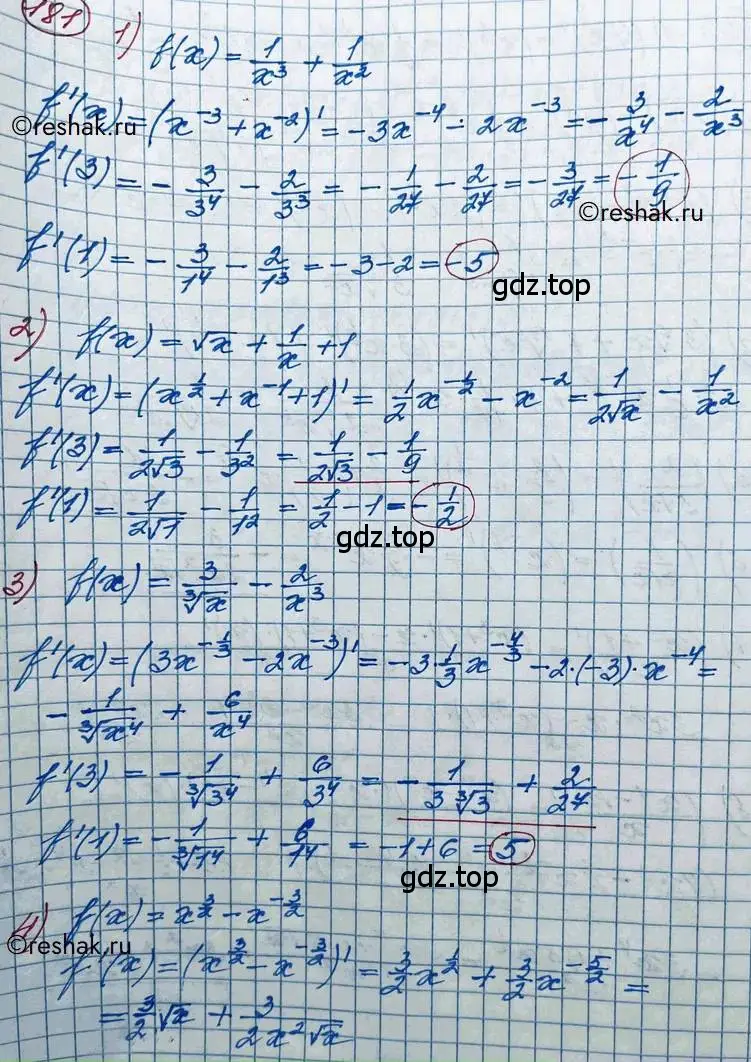 181
1) f(x) = 1/x³ + 1/x²
f'(x) = (x⁻³ + x⁻²)' = -3x⁻⁴ - 2x⁻³ = -3/x⁴ - 2/x³
©reshak.ru
f'(3) = -3/3⁴ - 2/3³ = -1/27 - 2/27 = -3/27 = -1/9
©reshak.ru
f'(1) = -3/1⁴ - 2/1³ = -3-2 = -5
gdz.top
2) f(x) = √x + 1/x + 1
f'(x) = (x^(1/2) + x⁻¹ + 1)' = 1/2 x^(-1/2) - x⁻² = 1/(2√x) - 1/x²
f'(3) = 1/(2√3) - 1/3² = 1/(2√3) - 1/9
f'(1) = 1/(2√1) - 1/1² = 1/2 - 1 = -1/2
gdz.top
3) f(x) = 3/∛x - 2/x³
f'(x) = (3x^(-1/3) - 2x⁻³)' = -3·1/3 x^(-4/3) - 2·(-3)·x⁻⁴ =
-1/∛x⁴ + 6/x⁴
f'(3) = -1/∛3⁴ + 6/3⁴ = -1/(3∛3) + 2/27
f'(1) = -1/∛1⁴ + 6/1⁴ = -1+6 = 5
gdz.top
4) f(x) = x^(3/2) - x^(-3/2)
©reshak.ru
f'(x) = (x^(3/2) - x^(-3/2))' = 3/2 x^(1/2) + 3/2 x^(-5/2) =
= 3/2 √x + 3/(2x²√x)